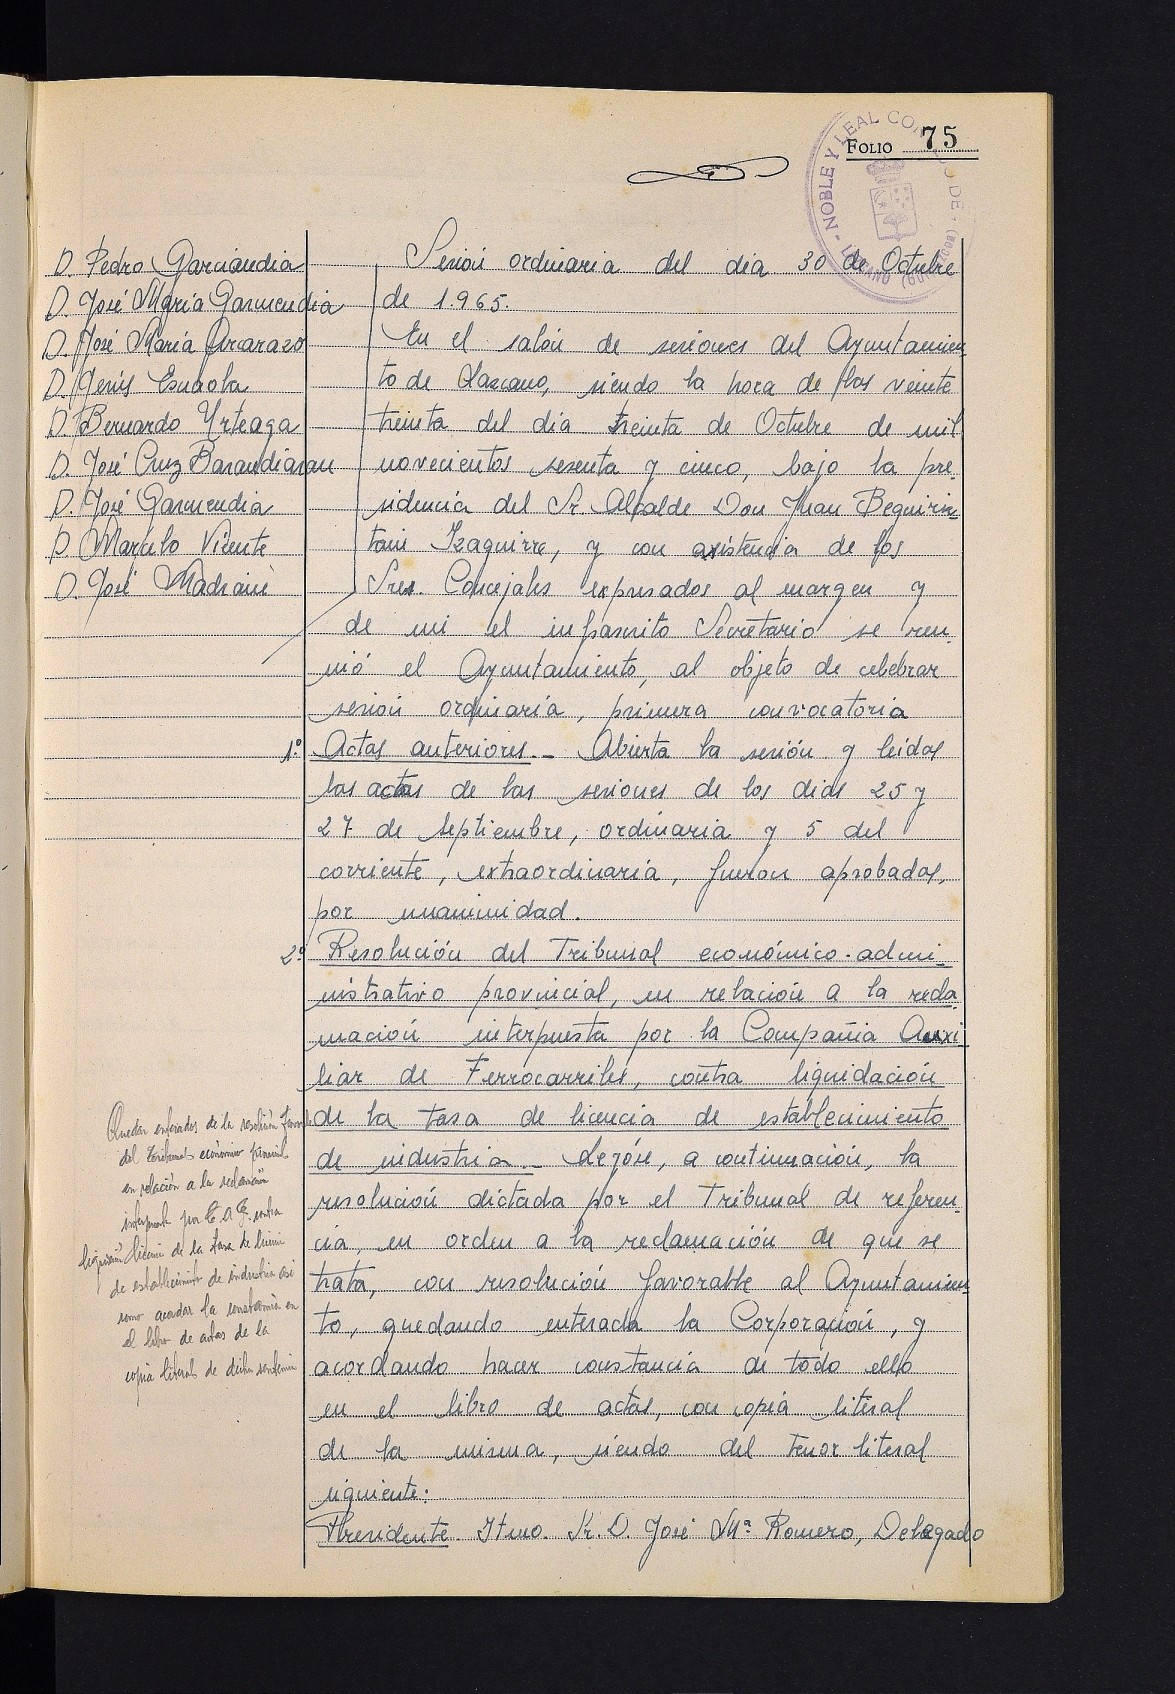 FOLIO 75
NOBLE Y LEAL
D. Pedro Garciandia
D. José María Garmendia
D. José María Arcarazo
D. Jesús Esnaola
D. Bernardo Urteaga
D. José Cruz Barandiaran
D. José Garmendia
D. Marcelo Vicente
D. José Madrané
Sesión ordinaria del dia 30 de Octubre
de 1.965.
En el salón de sesiones del Ayuntamien-
to de Lazcano, siendo la hora de las veinte
treinta del dia treinta de Octubre de mil
novecientos sesenta y cinco, bajo la pre-
sidencia del Sr. Alcalde Don Juan Beguiris-
tain Izaguirre, y con asistencia de los
Sres. Concejales expresados al margen y
de mi el infrascrito Secretario se reu-
nió el Ayuntamiento, al objeto de celebrar
sesión ordinaria, primera convocatoria
1º Actas anteriores.- Abierta la sesión y leidas
las actas de las sesiones de los dias 25 y
27 de Septiembre, ordinaria y 5 del
corriente, extraordinaria, fueron aprobadas,
por unanimidad.
2º Resolución del Tribunal económico-admi-
nistrativo provincial, en relación a la recla
mación interpuesta por la Compañia Auxi-
liar de Ferrocarriles, contra liquidación
de la tasa de licencia de establecimiento
de industria.- Leyóse, a continuación, la
resolución dictada por el Tribunal de referen-
cia, en orden a la reclamación de que se
trata, con resolución favorable al Ayuntamien-
to, quedando enterada la Corporación, y
acordando hacer constancia de todo ello
en el libro de actas, con copia literal
de la misma, siendo del tenor literal
siguiente:
Presidente Itmo. Sr. D. José Mª Romero, Delegado
Quedar enterados de la resolución favorab
del tribunal económico provincial
en relación a la reclamación
interpuesta por C. A. F. contra
de la tasa de licencia
de establecimiento de industria asi
como acordar la constancia en
el libro de actas de la
copia literal de dicha sentencia